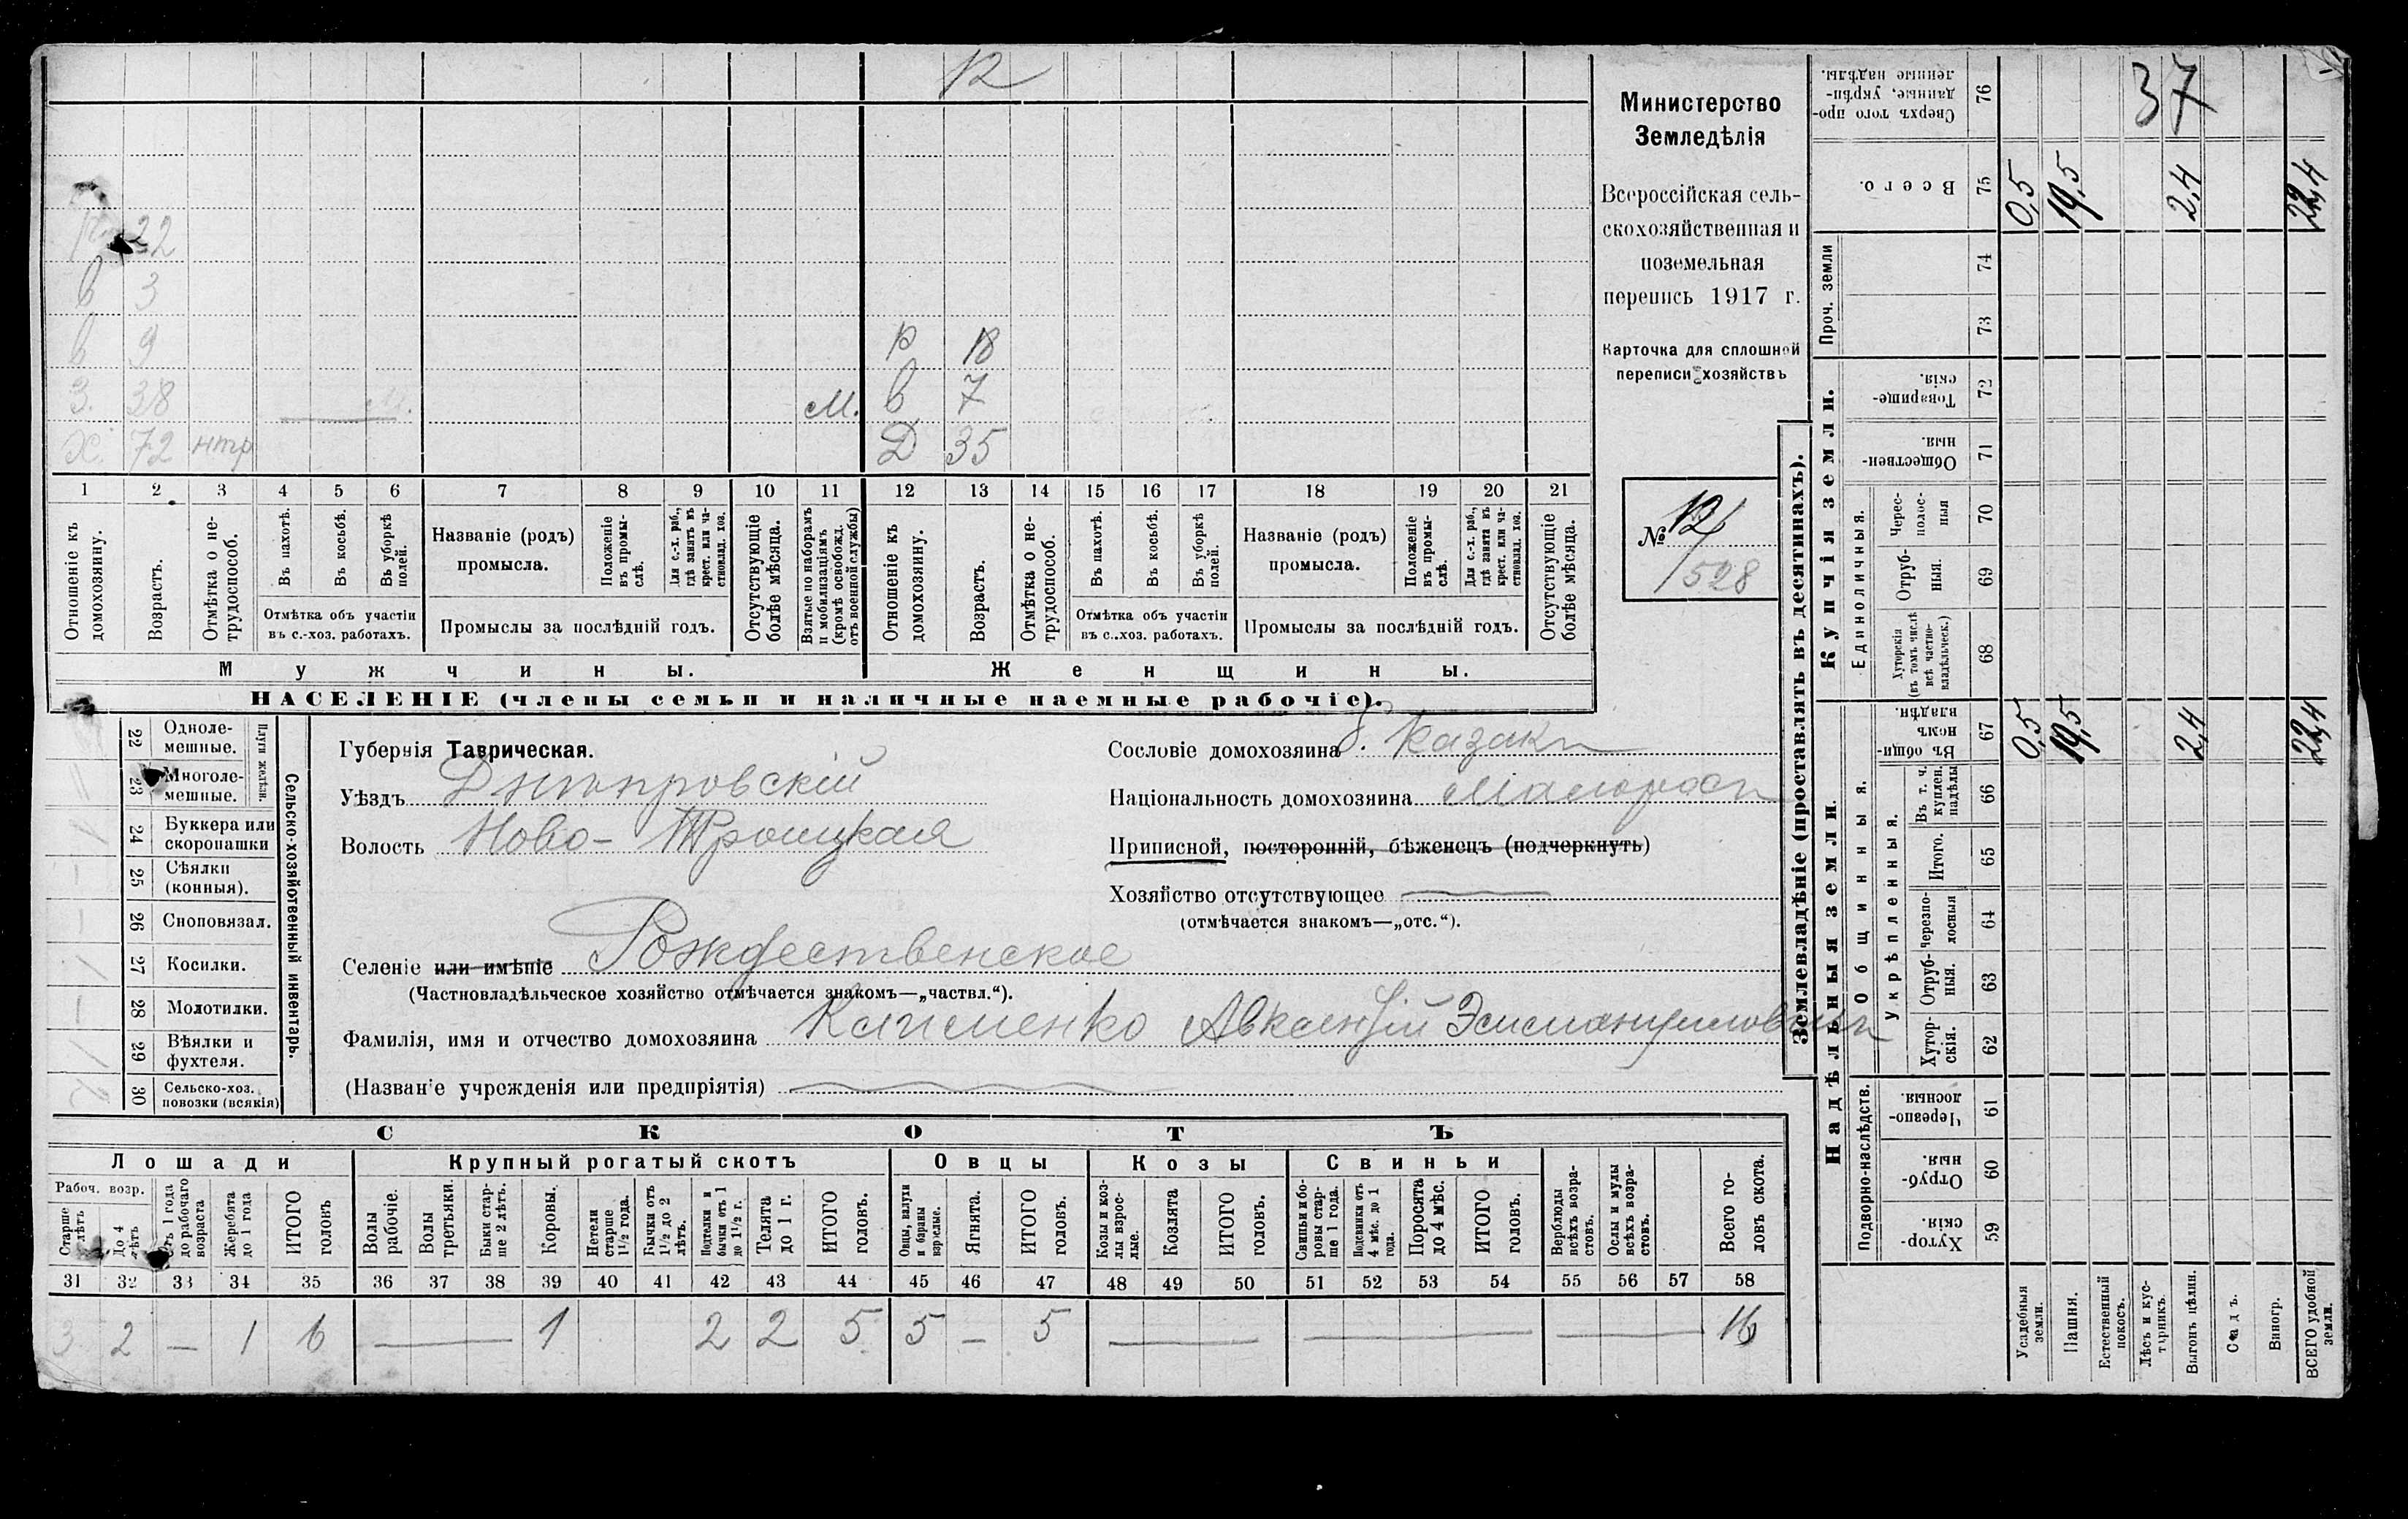 12
37
Министерство
Земледѣлія
Всероссійская сель-
скохозяйственная и
поземельная
перепись 1917 г.
Карточка для сплошной
переписи хозяйствъ
№ 12/
528
22
в 3
в 9
р 18
З. 38 М. М. в 7
Х. 72 нтр Д 35
1 2 3 4 5 6 7 8 9 10 11 12 13 14 15 16 17 18 19 20 21
Отношеніе къ домохозяину.
Возрастъ.
Отмѣтка о не-трудоспособ.
Въ пахотѣ.
Въ косьбѣ.
Въ уборкѣ полей.
Отмѣтка объ участіи
въ с.-хоз. работахъ.
Названіе (родъ)
промысла.
Положеніе въ промы-слѣ.
Для с.-х. раб., гдѣ занятъ въ крест. или ча-стновлад. хоз.
Промыслы за послѣдній годъ.
Отсутствующіе болѣе мѣсяца.
Взятые по наборамъ и мобилизаціямъ (кромѣ освобожд. отъ военной службы)
Отношеніе къ домохозяину.
Возрастъ.
Отмѣтка о не-трудоспособ.
Въ пахотѣ.
Въ косьбѣ.
Въ уборкѣ полей.
Отмѣтка объ участіи
въ с.-хоз. работахъ.
Названіе (родъ)
промысла.
Положеніе въ промы-слѣ.
Для с.-х. раб., гдѣ занята въ крест. или ча-стновлад. хоз.
Промыслы за послѣдній годъ.
Отсутствующіе болѣе мѣсяца.
Мужчины.
Женщины.
НАСЕЛЕНІЕ (члены семьи и наличные наемные рабочіе).
Сельско-хозяйственный инвентарь.
Плуги желѣзн.
22 Одноле-мешные.
23 Многоле-мешные.
24 Буккера или скоропашки
25 Сѣялки (конныя).
26 Сноповязал.
27 Косилки.
28 Молотилки.
29 Вѣялки и фухтеля.
30 Сельско-хоз. повозки (всякія)
Губернія Таврическая.
Уѣздъ Днѣпровскій
Волость Ново-Троицкая
Сословіе домохозяина б. казакъ
Національность домохозяина Малоросъ
Приписной, посторонній, бѣженецъ (подчеркнуть)
Хозяйство отсутствующее
(отмѣчается знакомъ—„отс.“).
Селеніе или имѣніе Рождественское
(Частновладѣльческое хозяйство отмѣчается знакомъ—„частвл.“).
Фамилія, имя и отчество домохозяина Клименко
(Названіе учрежденія или предпріятія)
СКОТЪ
Лошади
Крупный рогатый скотъ
Овцы
Козы
Свиньи
Рабоч. возр.
Старше лѣтъ
До 4 лѣтъ
Отъ 1 года до рабочаго возраста
Жеребята до 1 года
ИТОГО головъ
Волы рабочіе.
Волы третьяки.
Быки стар-ше 2 лѣтъ.
Коровы.
Нетели старше 1½ года.
Бычки отъ 1½ до 2 лѣтъ.
Подтелки и бычки отъ 1 до 1½ г.
Телята до 1 г.
ИТОГО головъ.
Овцы, валухи и бараны взрослые.
Ягнята.
ИТОГО головъ.
Козы и коз-лы взрос-лые.
Козлята
ИТОГО головъ.
Свиньи и бо-ровы стар-ше 1 года.
Подсвинки отъ 4 мѣс. до 1 года.
Поросята до 4 мѣс.
ИТОГО головъ.
Верблюды всѣхъ возра-стовъ.
Ослы и мулы всѣхъ возра-стовъ.
Всего го-ловъ скота.
31 32 33 34 35 36 37 38 39 40 41 42 43 44 45 46 47 48 49 50 51 52 53 54 55 56 57 58
3 2 — 1 6 — 1 2 2 5 5 — 5 — — — 16
Землевладѣніе (проставлять въ десятинахъ).
Надѣльныя земли.
Купчія земли.
Проч. земли
Подворно-наслѣдств.
Общинныя.
Укрѣпленныя.
Единоличныя.
Хутор-скія. 59
Отруб-ныя. 60
Черезпо-лосныя. 61
Хутор-скія. 62
Отруб-ныя. 63
Черезпо-лосныя 64
Итого. 65
Въ т. ч. куплен. надѣлы 66
Въ общи-номъ владѣн. 67
Хуторскія (въ томъ числѣ всѣ частно-владѣльческ.) 68
Отруб-ныя. 69
Черес-полос-ныя 70
Обществен-ныя. 71
Товарище-скія. 72
73
74
Всего. 75
Сверхъ того про-данные, укрѣп-ленные надѣлы. 76
Усадебныя земли. 0,5 0,5
Пашня. 19,5 19,5
Естественный покосъ.
Лѣсъ и кус-тарникъ.
Выгонъ цѣлин. 2,4 2,4
Садъ.
Виногр.
ВСЕГО удобной земли. 22,4 22,4